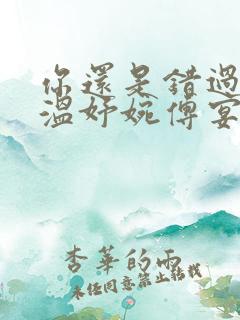 你還是錯過
溫妤婉傅宴
杏華的雨
未经同意禁止转载